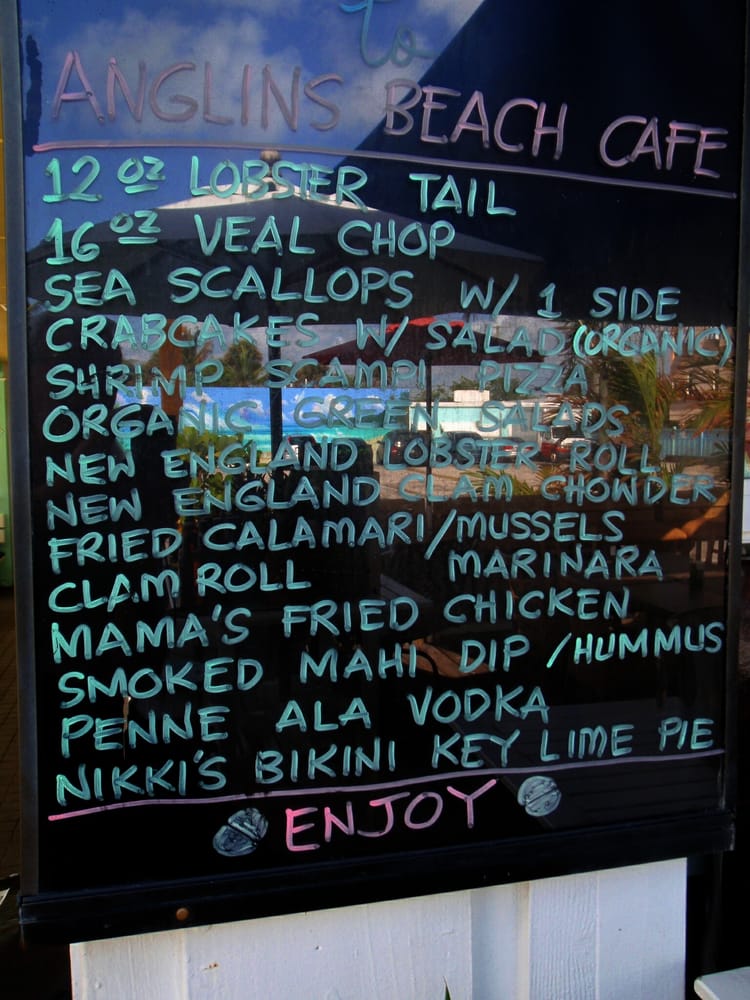 to
ANGLINS BEACH CAFE
12 OZ LOBSTER TAIL
16 OZ VEAL CHOP
SEA SCALLOPS W/ 1 SIDE
CRABCAKES W/ SALAD (ORGANIC)
SHRIMP SCAMPI PIZZA
ORGANIC GREEN SALADS
NEW ENGLAND LOBSTER ROLL
NEW ENGLAND CLAM CHOWDER
FRIED CALAMARI/MUSSELS
CLAM ROLL MARINARA
MAMA'S FRIED CHICKEN
SMOKED MAHI DIP /HUMMUS
PENNE ALA VODKA
NIKKI'S BIKINI KEY LIME PIE
ENJOY